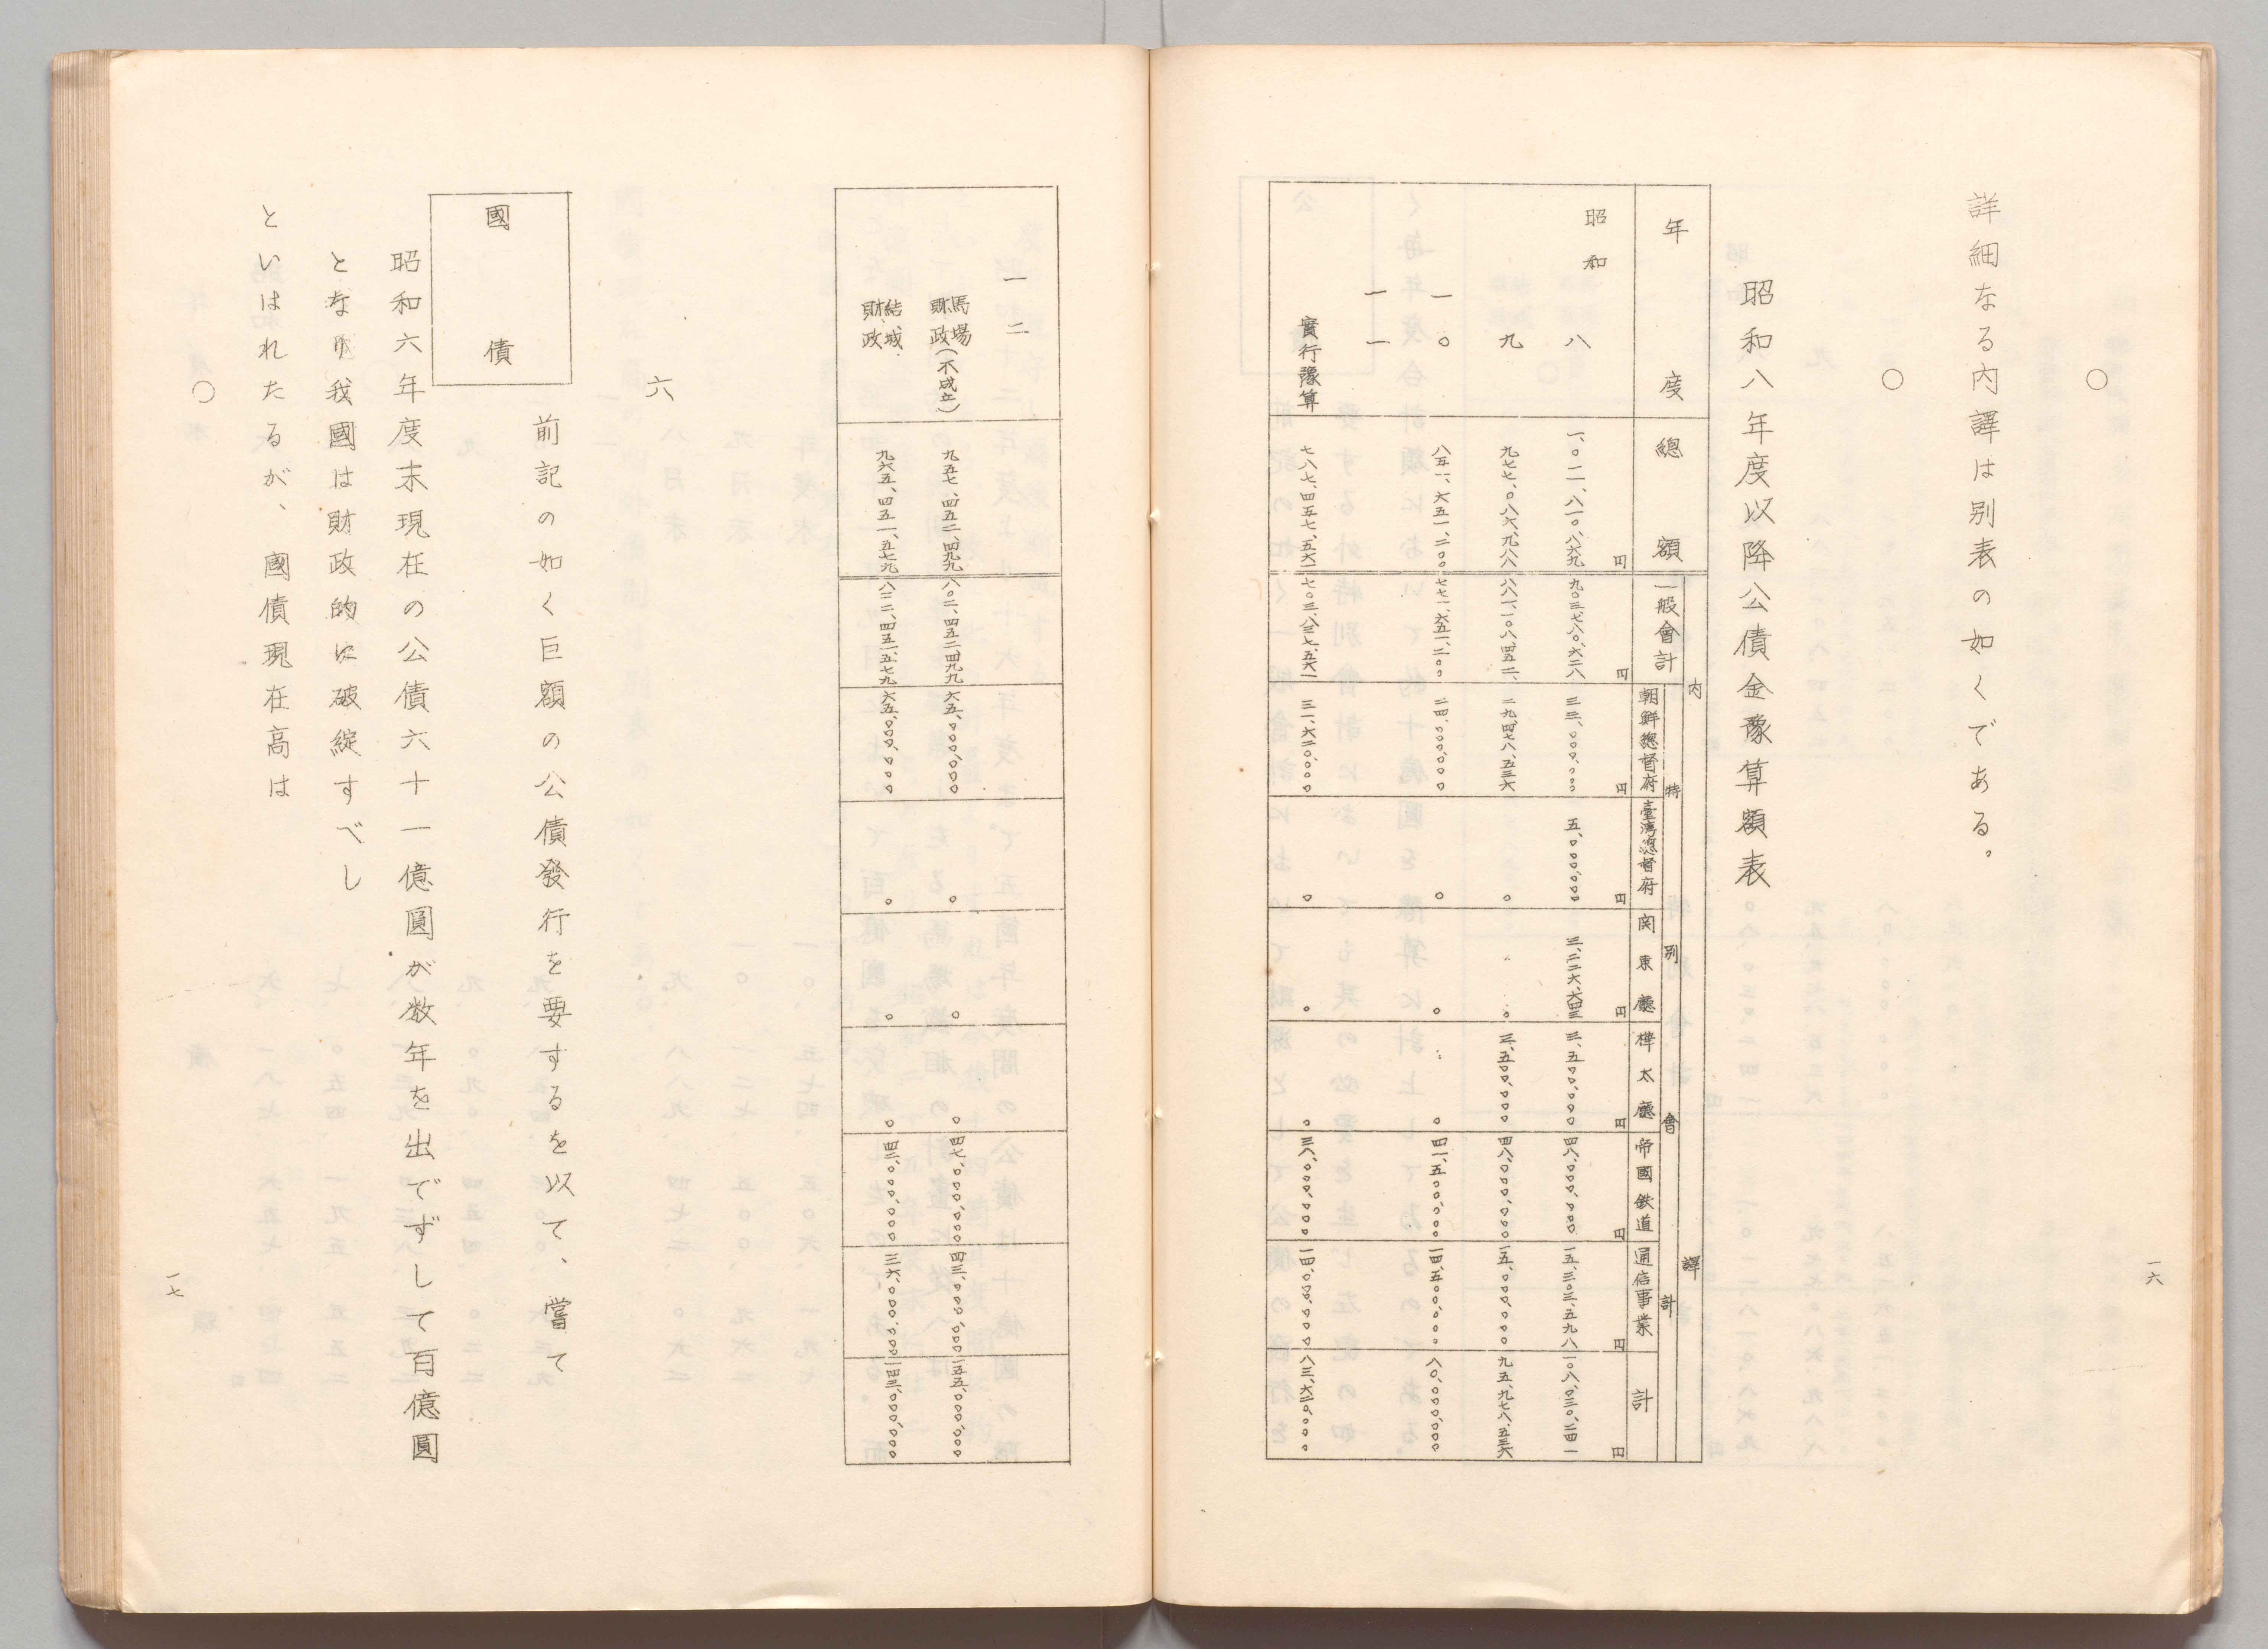 ○
詳細なる内譯は別表の如くである。
○
昭和八年度以降公債金豫算額表
内 譯
特 別 會 計
年度 總額 一般會計 朝鮮總督府 臺灣總督府 関東廳 樺太廳 帝國鉄道 通信事業 計
円 円 円 円 円 円 円 円 円
昭和 八 一、〇一一、八一〇、八六九 九〇三、七八〇、六二八 三三、〇〇〇、〇〇〇 五、〇〇〇、〇〇〇 三、二二六、六四三 三、五〇〇、〇〇〇 四八、〇〇〇、〇〇〇 一五、三〇三、五九八 一〇八、〇三〇、二四一
九 九七七、〇八六、九八八 八八一、一〇八、四五二、 二九、四七八、五三六 〇 〇 三、五〇〇、〇〇〇 四八、〇〇〇、〇〇〇 一五、〇〇〇、〇〇〇 九五、九七八、五三六
一〇 八五一、六五一、二〇〇 七七一、六五一、二〇〇 二四、〇〇〇、〇〇〇 〇 〇 〇 四一、五〇〇、〇〇〇 一四、五〇〇、〇〇〇 八〇、〇〇〇、〇〇〇
一一
實行豫算 七八七、四五七、五六一 七〇三、八三七、五六一 三一、六二〇、〇〇〇 〇 〇 〇 三八、〇〇〇、〇〇〇 一四、〇〇〇、〇〇〇 八三、六二〇、〇〇〇
一六
一二
馬場財政(不成立) 九五七、四五二、四九九 八〇二、四五二、四九九 六五、〇〇〇、〇〇〇 〇 〇 〇 四七、〇〇〇、〇〇〇 四三、〇〇〇、〇〇〇 一五五、〇〇〇、〇〇〇
結城財政 九六五、四五一、五七九 八二二、四五一、五七九 六五、〇〇〇、〇〇〇 〇 〇 〇 四二、〇〇〇、〇〇〇 三六、〇〇〇、〇〇〇 一四三、〇〇〇、〇〇〇
六
國債
前記の如く巨額の公債發行を要するを以て、嘗て
昭和六年度末現在の公債六十一億圓が数年を出でずして百億圓
となり我國は財政的に破綻すべし
といはれたるが、國債現在高は
○
一七